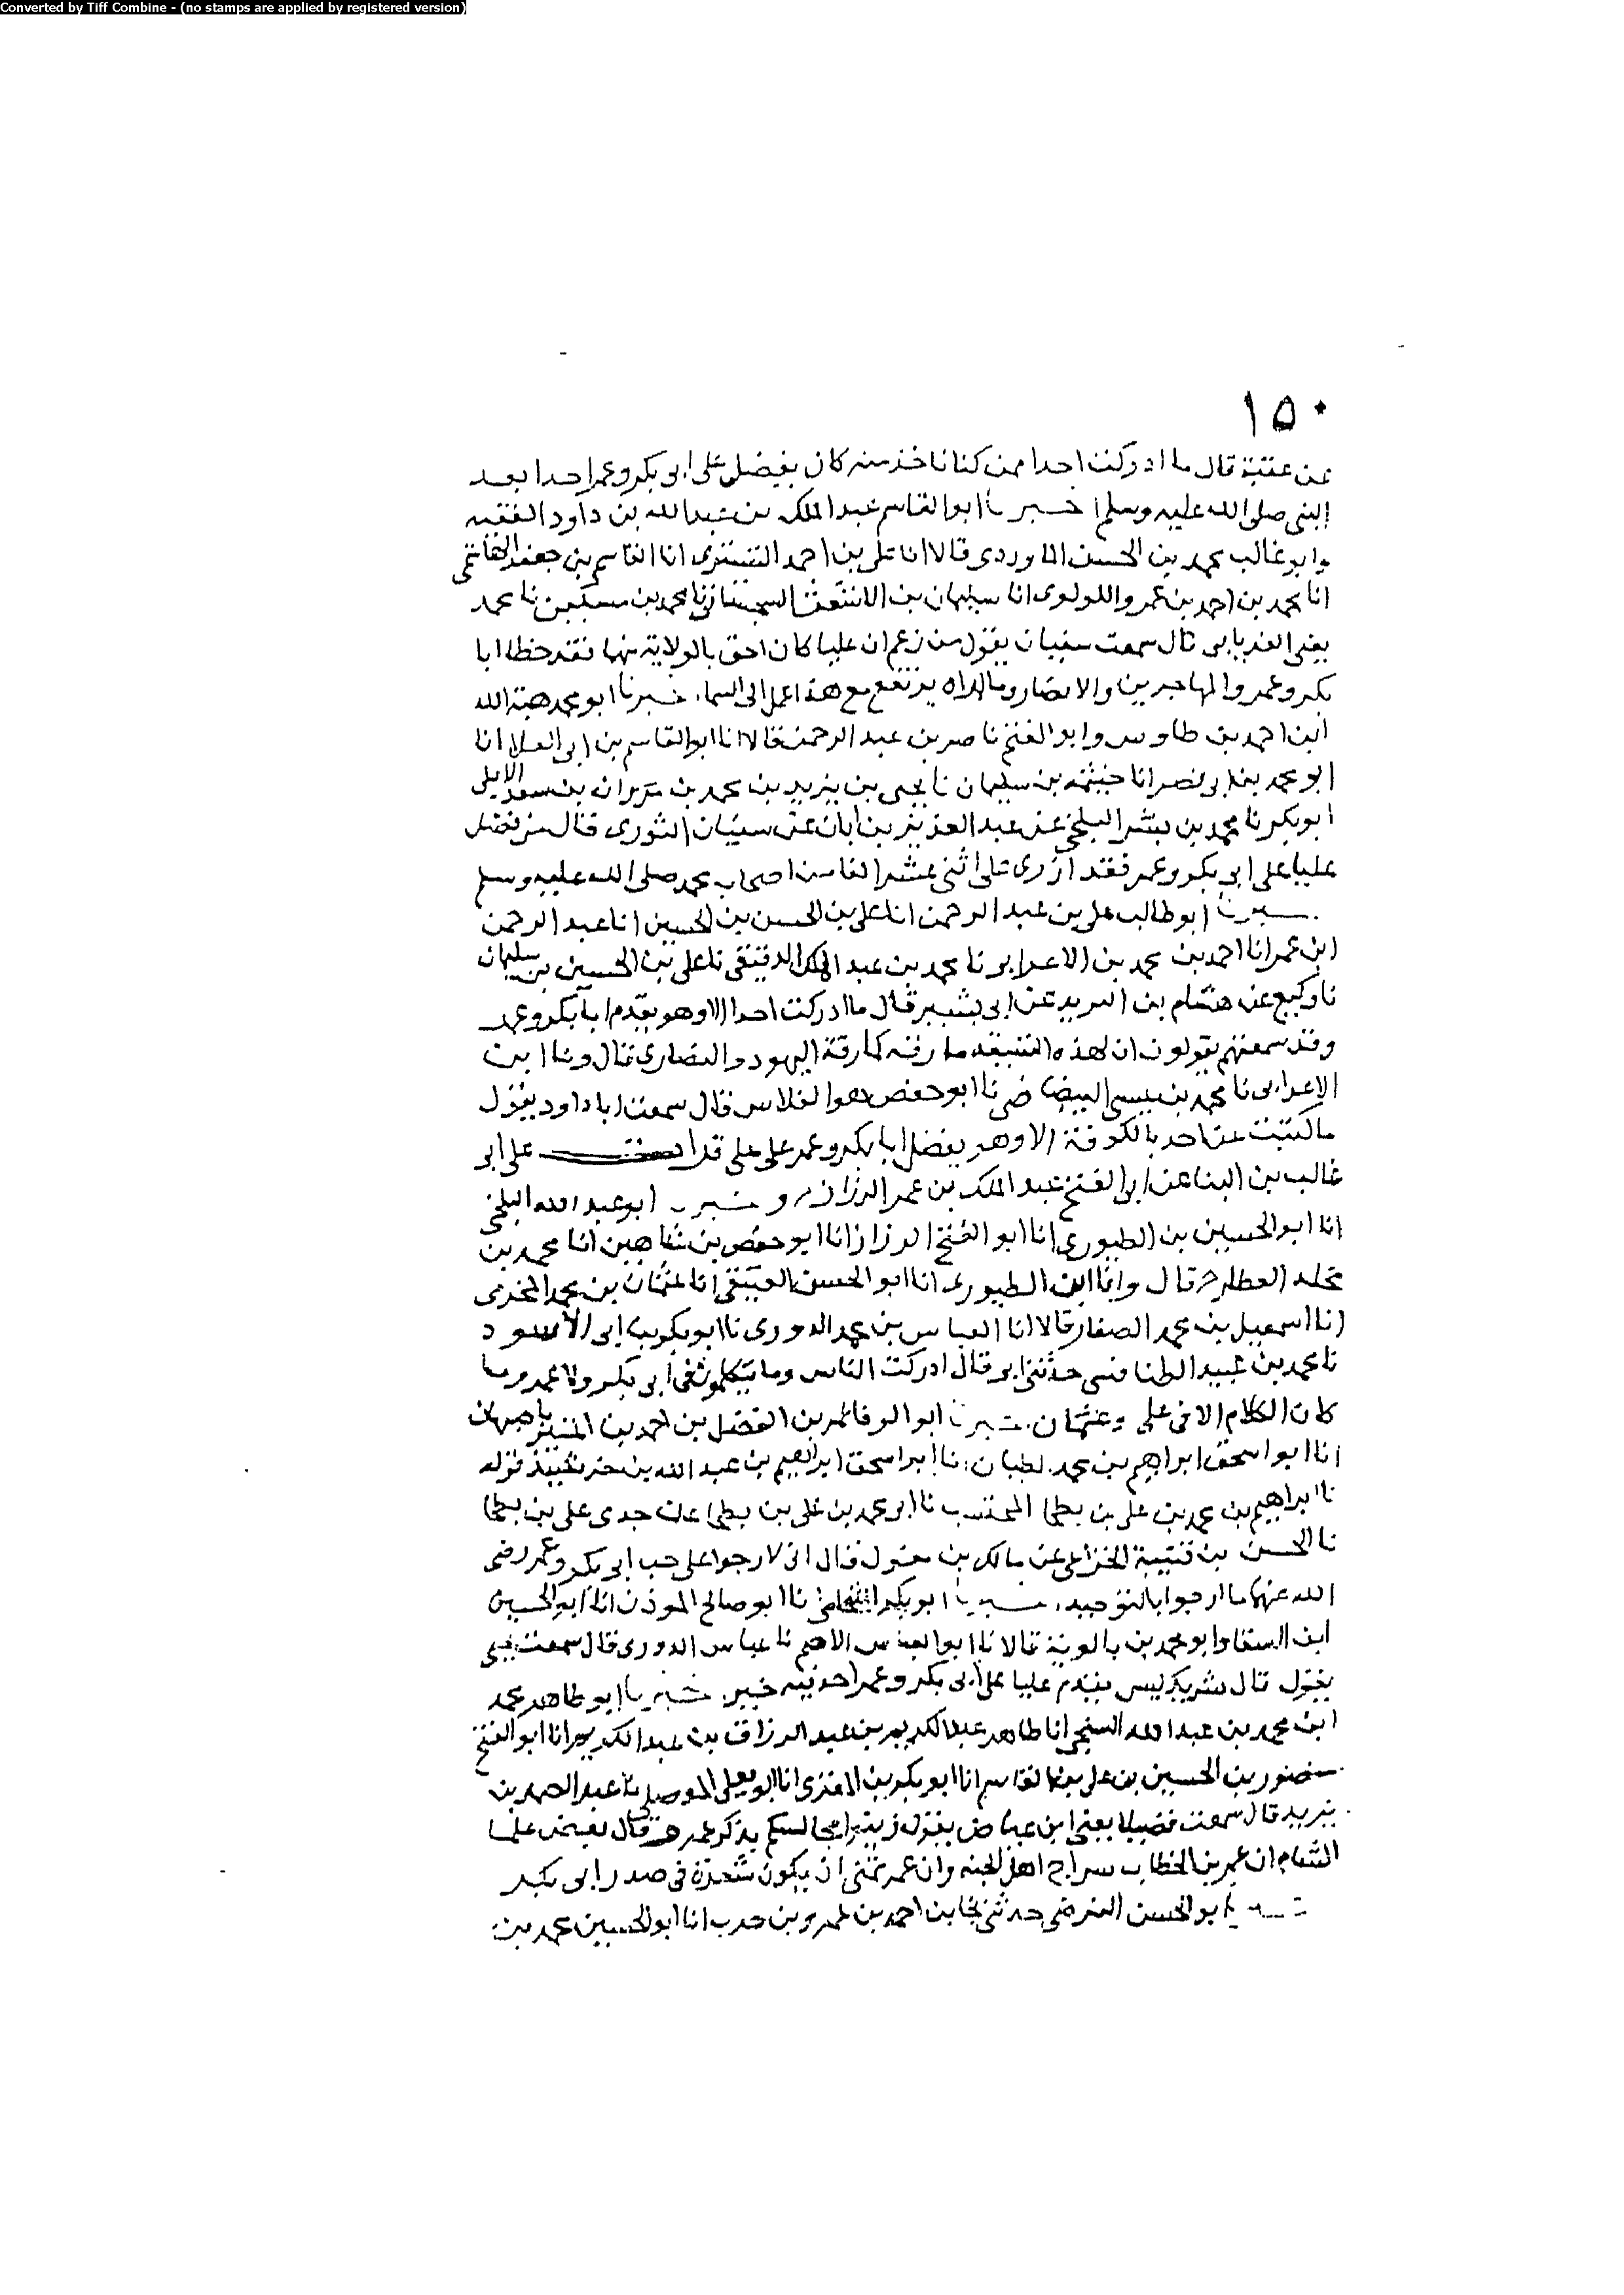 Converted by Tiff Combine - (no stamps are applied by registered version)
١٥٠
عن عتبة قال ما ادركت احدا ممن كنا ناخذ منه كان يفضل على ابى بكر وعمر احدا بعد
النبى صلى الله عليه وسلم اخبرنا ابو القاسم عبد الملك بن عبد الله بن داود الفقيه
وابو غالب محمد بن الحسن الماوردى قالا انا على بن احمد التسترى انا القاسم بن جعفر الهاشمى
انا محمد بن احمد بن عمرو اللولوى انا سليمان بن الاشعث السجستانى نا محمد بن مسكين نا محمد
يعنى الفريابى قال سمعت سفيان يقول من زعم ان عليا كان احق بالولاية منهما فقد خطا ابا
بكر وعمر والمهاجرين والانصار وما اراه يرتفع مع هذا عمل الى السماء خبرنا ابو محمد هبة الله
ابن احمد بن طاوس وابو الفتح ناصر بن عبد الرحمن قالا انا ابو القاسم بن ابى العلا انا
ابو محمد بن ابى نصر انا خيثمة بن سليمان نا يحيى بن يزيد بن محمد بن مروان بن سعد الايلى
ابو بكر نا محمد بن بشر البلخى عن عبد العزيز بن ابان عن سفيان الثورى قال من فضل
عليا على ابى بكر وعمر فقد ازرى على اثنى عشر الفا من اصحاب محمد صلى الله عليه وسلم
خبرنا ابو طالب على بن عبد الرحمن انا على بن الحسن بن الحسين انا عبد الرحمن
ابن عمر انا احمد بن محمد بن الاعرابى نا محمد بن عبد الملك الدقيقى نا على بن الحسين بن سليمان
نا وكيع عن هشام بن البريد عن ابى بشير قال ما ادركت احدا الا وهو يقدم ابا بكر وعمر
وقد سمعتهم يقولون ان لهذه الشيعة مارقة كمارقة اليهود والنصارى قال ونا ابن
الاعرابى نا محمد بن عيسى البياضى نا ابو حفص هو الفلاس قال سمعت ابا داود يقول
ما كتبت عن احد بالكوفة الا وهو يفضل ابا بكر وعمر على على قرات على ابى
غالب بن البنا عن ابى الفتح عبد الملك بن عمر الرزاز وخبرنا ابو عبد الله البلخى
انا ابو الحسين بن الطيورى انا ابو الفتح الرزاز انا ابو حفص بن شاهين انا محمد بن
مخلد العطار ح قال وانا ابن الطيورى انا ابو الحسن العتيقى انا عثمان بن محمد المخرمى
انا اسمعيل بن محمد الصفار قالا انا العباس بن محمد الدورى نا ابو بكر بن ابى الاسود
نا محمد بن عبيد الطنافسى حدثنى ابى قال ادركت الناس وما يتكلمون فى ابى بكر ولا عمر وما
كان الكلام الا فى على وعثمان خبرنا ابو الوفا عمر بن الفضل بن احمد بن المميز باصبهان
انا ابو اسحق ابراهيم بن محمد الطيان انا ابو اسحق ابراهيم بن عبد الله بن خرشيذ قوله
نا ابراهيم بن محمد بن على بن بطحا المحتسب نا ابى محمد بن على بن بطحا عن جدى على بن بطحا
نا الحسن بن قتيبة الخزاعى عن مالك بن مغول قال انى لارجوا على حب ابى بكر وعمر رضى
الله عنهما ما ارجوا بالتوحيد خبرنا ابو بكر الشحامى نا ابو صالح الموذن انا ابو الحسين
ابن السقا وابو محمد بن بالوية قالا نا ابو العباس الاصم نا عباس الدورى قال سمعت يحيى
يقول قال شريك ليس يقدم عليا على ابى بكر وعمر احد فيه خير خبرنا ابو طاهر محمد
ابن محمد بن عبد الله السنجى انا طاهر عبد الكريم بن عبد الرزاق بن عبد الكريم انا ابو الفتح
منصور بن الحسين بن على بن القاسم انا ابو بكر بن المقرى انا ابو يعلى الموصلى نا عبد الصمد بن
يزيد قال سمعت فضيلا يعنى ابن عياض يقول زينوا مجالسكم بذكر عمر قال بعض علما
الشام ان عمر بن الخطاب سراج اهل الجنه وان عمر تمنى ان يكون شعرة فى صدر ابى بكر
ابو الحسن الفرضى حدثنى نجا بن احمد بن عمرو بن حرب انا ابو الحسين محمد بن